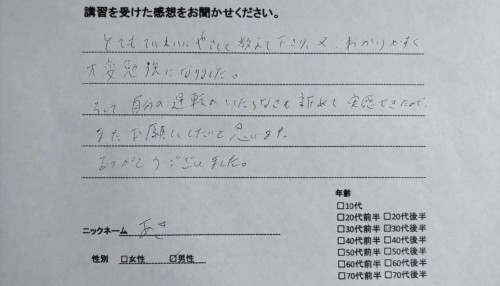 講習を受けた感想をお聞かせください。
とてもていねいにやさしく教えて下さり、又、わかりやすく
大変勉強になりました。
そして自分の運転のいたらなさも新めて実感できたので
またお願いしたいと思います
ありがとうございました。
ニックネーム あき
性別 □女性 ☑男性
年齢
□10代
□20代前半 □20代後半
□30代前半 ☑30代後半
□40代前半 □40代後半
□50代前半 □50代後半
□60代前半 □60代後半
□70代前半 □70代後半